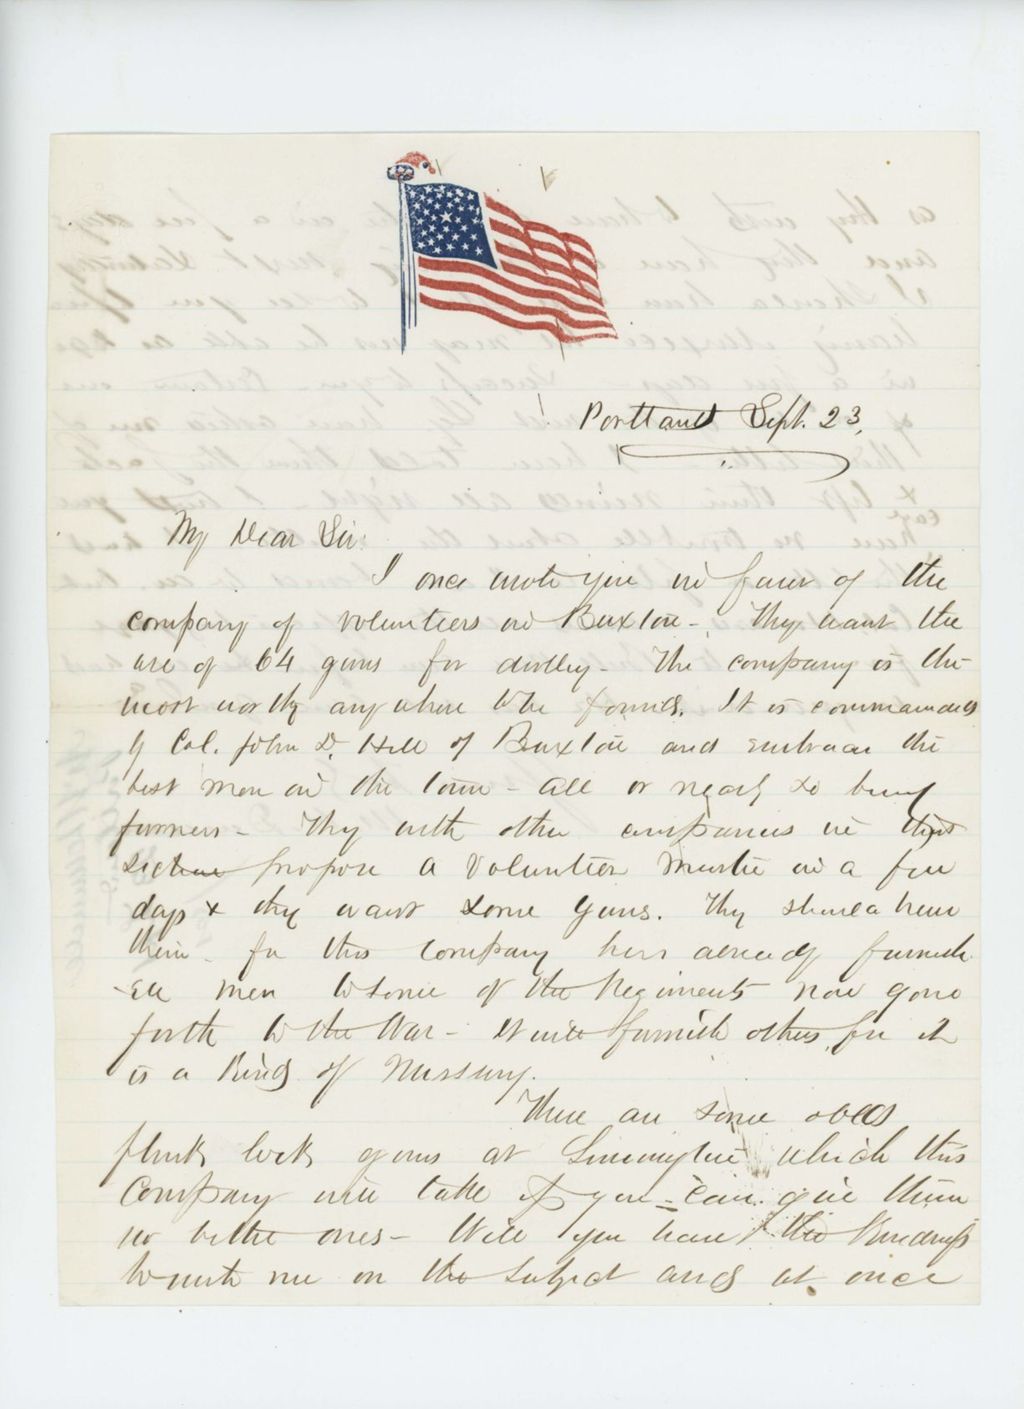 Portland Sept. 23,
My Dear Sir:
I once wrote you in favor of the
company of volunteers in Buxton - They want the
use of 64 guns for drilling - The company is the
most worthy any where to be found. It is commanded
by Col. John D. Hill of Buxton and embraces the
best men in the town - all or nearly so being
farmers - They with other companies in that
section propose a Volunteer Muster in a few
days & they want some guns. They should have
them - for this company has already furnish
-ed men to some of the Regiments now gone
forth to the War - It will furnish others, for it
is a kind of Nursery.
There are some old
flint lock guns at Limington which this
Company will take if you can give them
no better ones - Will you have the kindness
to write me on the subject and at once